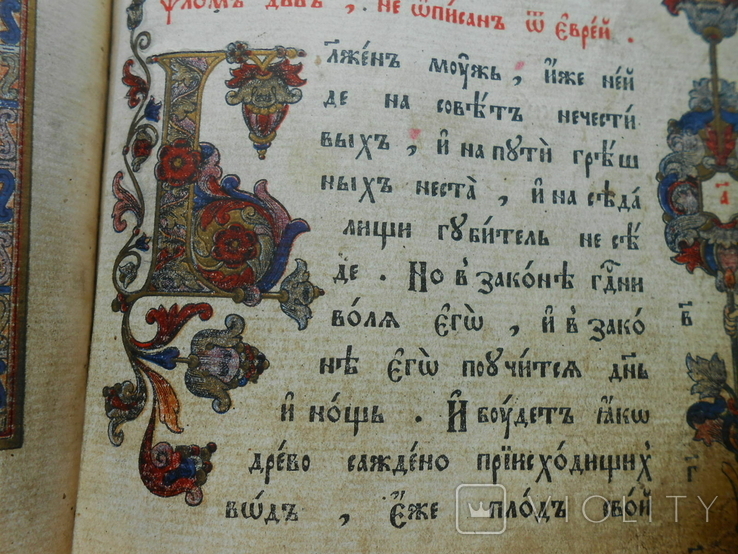 ѱлом̾ двд҃ , не ѿписан ѿ Еврей .
Блже́нъ моу́жь , и́же не́й
де на совѣ́тъ нечести́
выхъ , и҆ на пути̂ грѣ́ш
ныхъ неста̀ , и҆ на сѣ́да
лищи гу́битель не сѣ́
де . Но в̾зако́нѣ гдⷭ҇ни
во́ля Е҆гѡ̀ , и҆ в̾зако
нѣ е҆гѡ̀ поучи́тся дн҃ь
и҆ но́щь . И҆ воу́детъ ꙗ҆́кѡ
дре́во сажде́но при̂исхо́дищих̾
во́дъ , є҆́же пло́дъ сво́й
а҃
в҃
г҃
VIOLITY